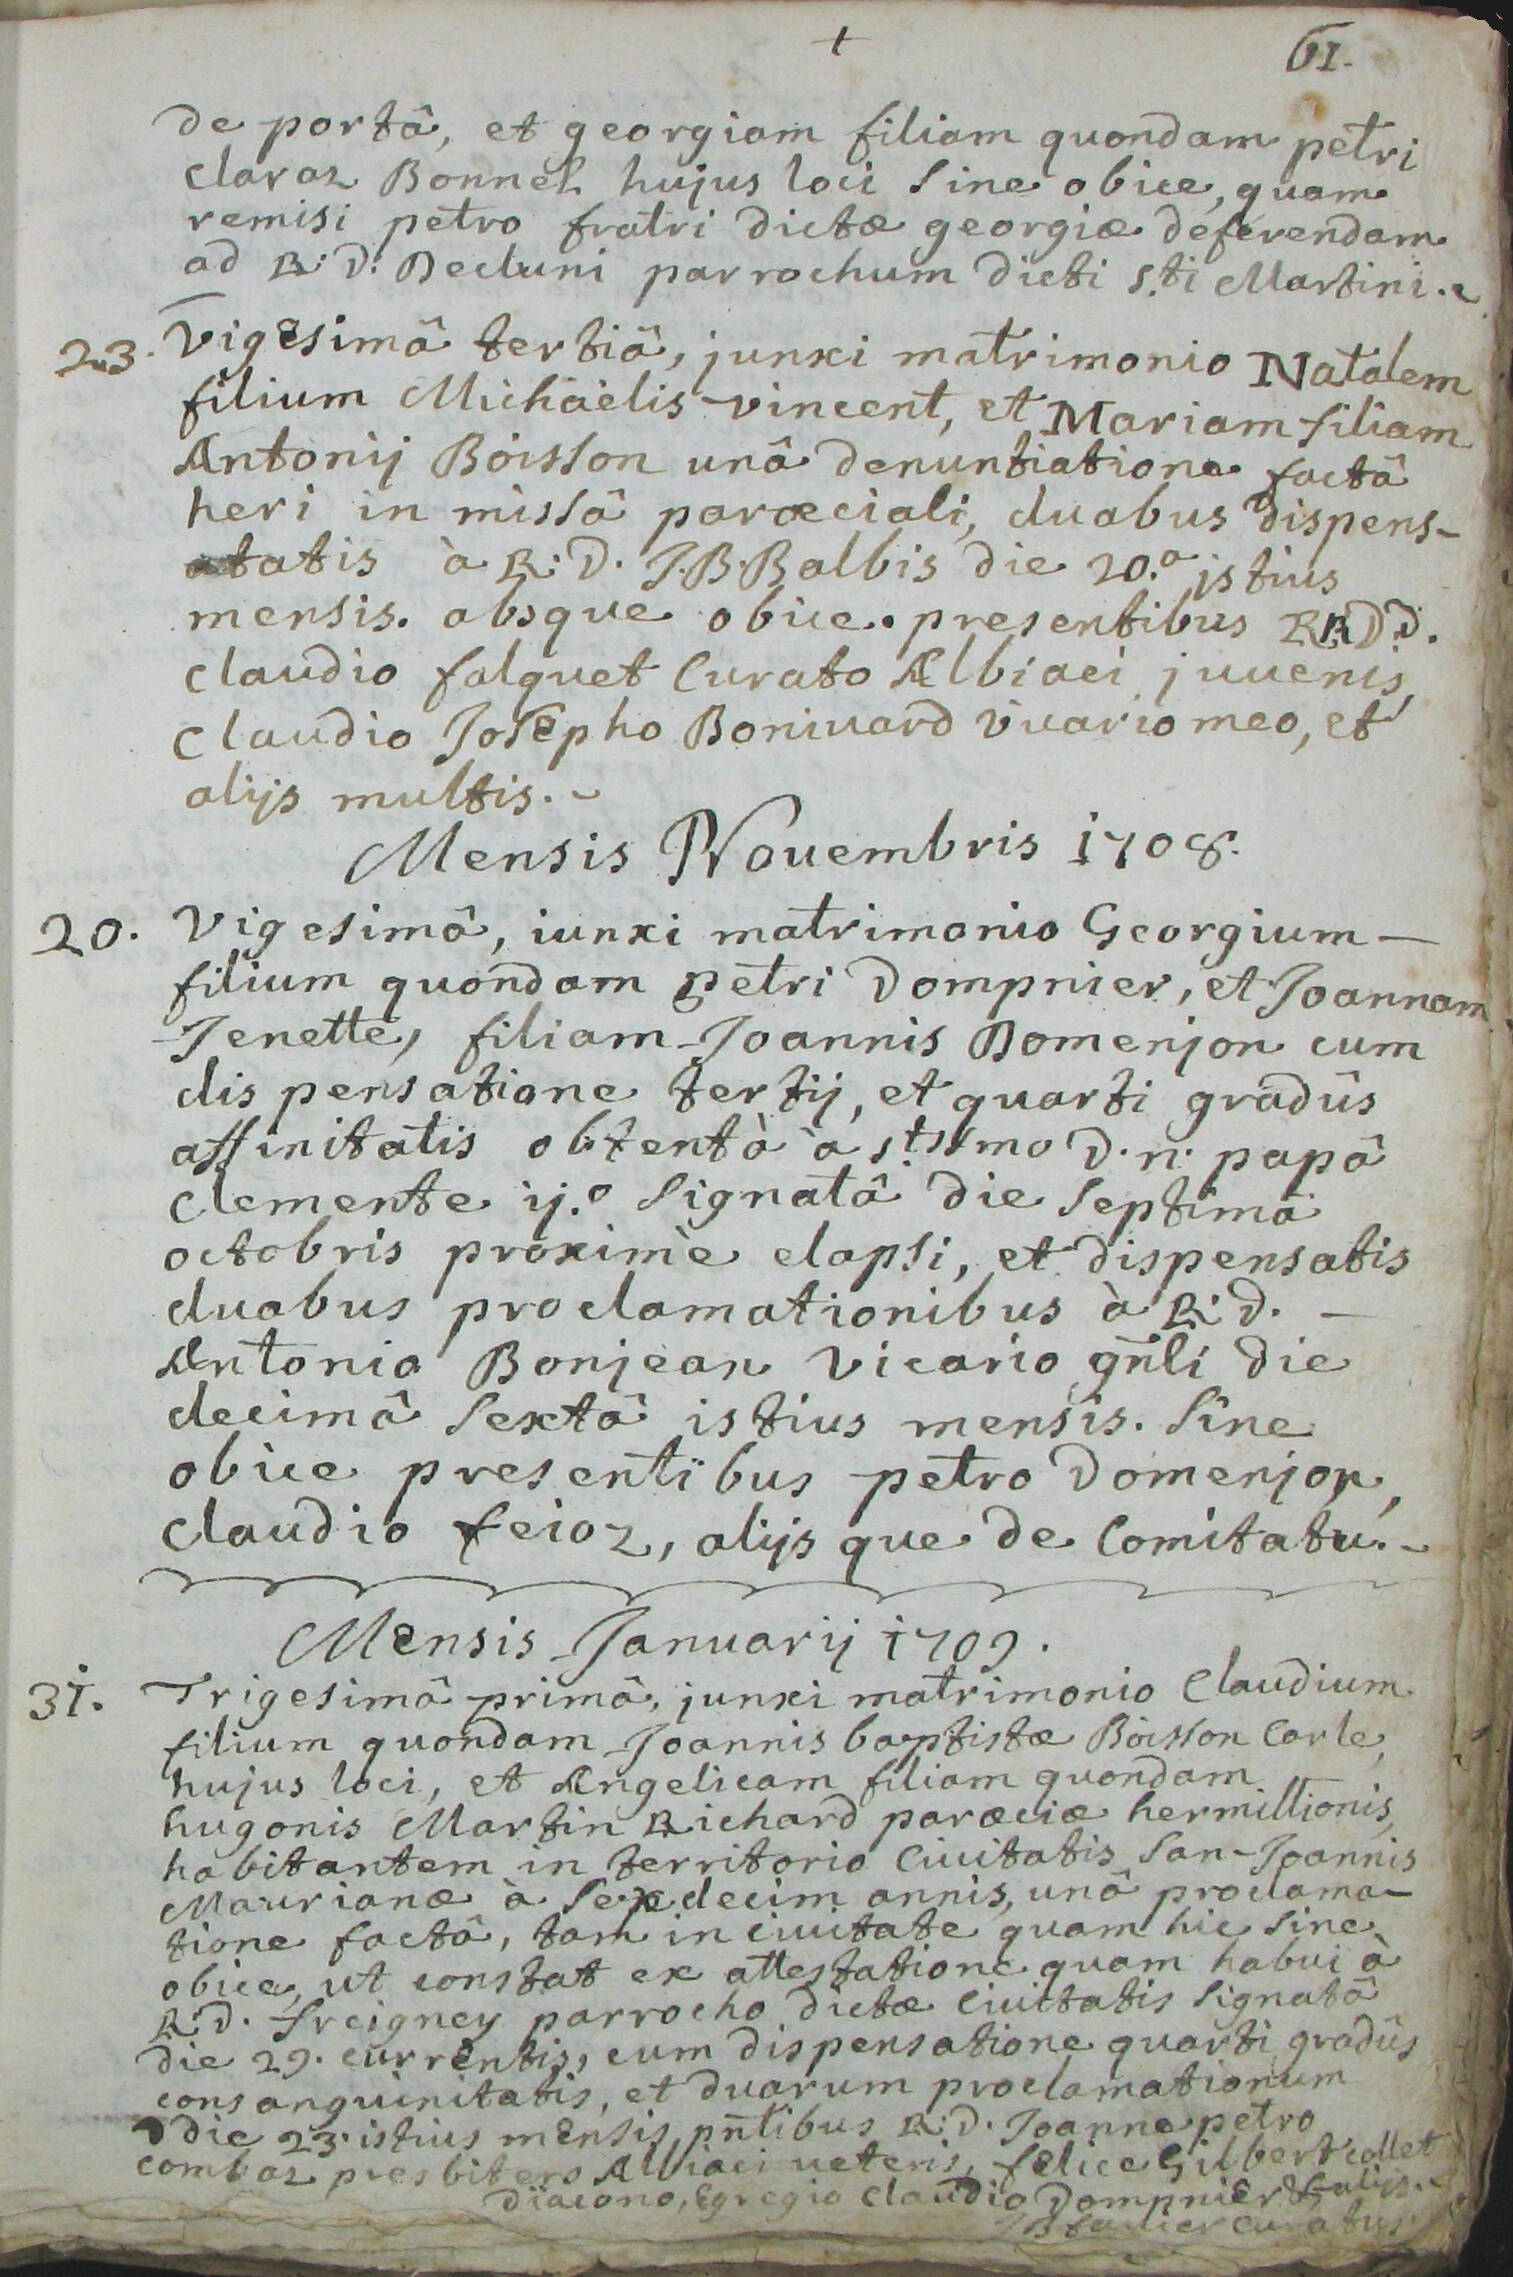 + 61.
de portâ, et georgiam filiam quondam petri
claraz Bonnel hujus loci sine obice, quam
remisi petro fratri dictæ georgiæ deferendam
ad R: D: Decluni parrochum dicti S.ti Martini.
23. Vigesimâ tertiâ, junxi matrimonio Natalem
filium Michäelis vincent, et Mariam filiam
Antonij Boisson unâ denuntiatione factâ
heri in missâ parœciali, duabus dispens-
atatis à R: D. J.B. Balbis die 20.a istius
mensis. absque obice. presentibus RR DD.
Claudio falquet Curato Albiaci juuenis,
Claudio Josepho Boniuard vicario meo, et
alijs multis.
Mensis Nouembris 1708.
20. Vigesimâ, iunxi matrimonio Georgium —
filium quondam petri Dompnier, et Joannam
Jenette, filiam Joannis Domenjon cum
dispensatione tertij, et quarti gradûs
affinitatis obtentà à stssmo D. n. papâ
clemente ij.o signatâ die septimâ
octobris proximè elapsi, et dispensatis
duabus proclamationibus à R: D. —
Antonio Bonjean vicario gñli die
decimâ sextâ istius mensis. sine
obice presentibus petro Domenjon,
Claudio feioz, alijsque de Comitatu.
Mensis Januarij 1709.
31. Trigesimâ primâ, junxi matrimonio Claudium
filium quondam Joannis baptistæ Boisson Carle,
hujus loci, et Angelicam filiam quondam
hugonis Martin Richard parœciæ hermillionis,
habitantem in territorio Ciuitatis San-Joannis
Maurianæ à sexdecim annis, unâ proclama-
tione factâ, tam in ciuitate quam hic sine
obice, ut constat ex attestatione quam habui à
R: D. freigney parrocho dictæ Ciuitatis signatâ
die 29. currentis, cum dispensatione quarti gradûs
consanguinitatis, et duarum proclamationum
die 23. istius mensis, pñtibus R: D. Joanne petro
combaz presbitero Albiaci ueteris, felice Gilbert collet
diacono, Egregio Claudio Dompnier & alijs.
curatus.